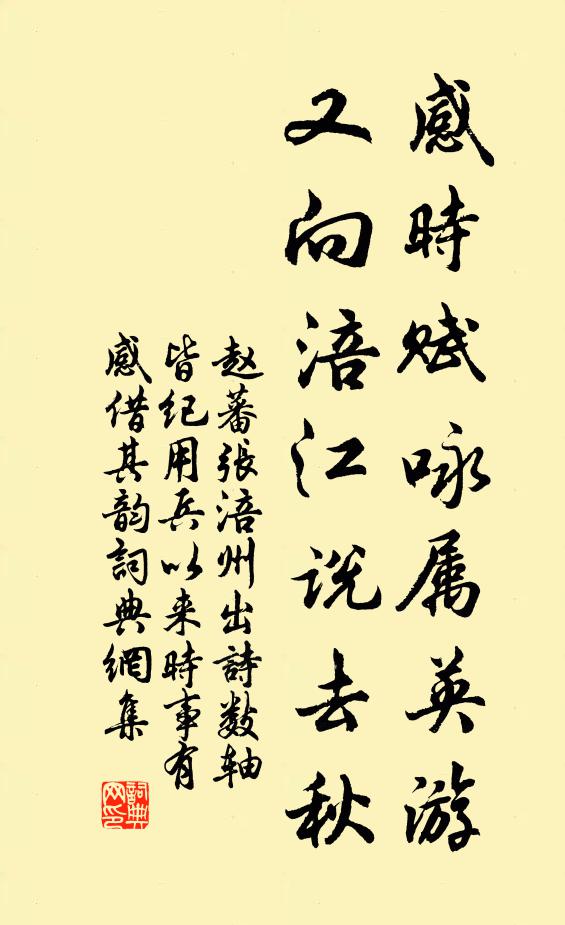 感時赋咏属英游
又向涪江说去秋
赵蕃張涪州出詩数轴
皆纪用兵以来時事有
感借其韵詞典網集
詞典网印